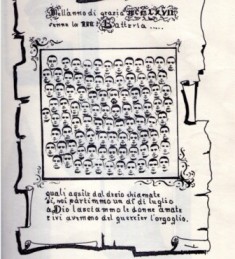 Nell'anno di grazia MCMLXVII
venne la Batteria .....
quali aquile dal desio chiamate
sì, noi partimmo un dì di luglio
a Dio lasciammo le donne amate
e ivi avemmo del guerrier l'orgoglio.